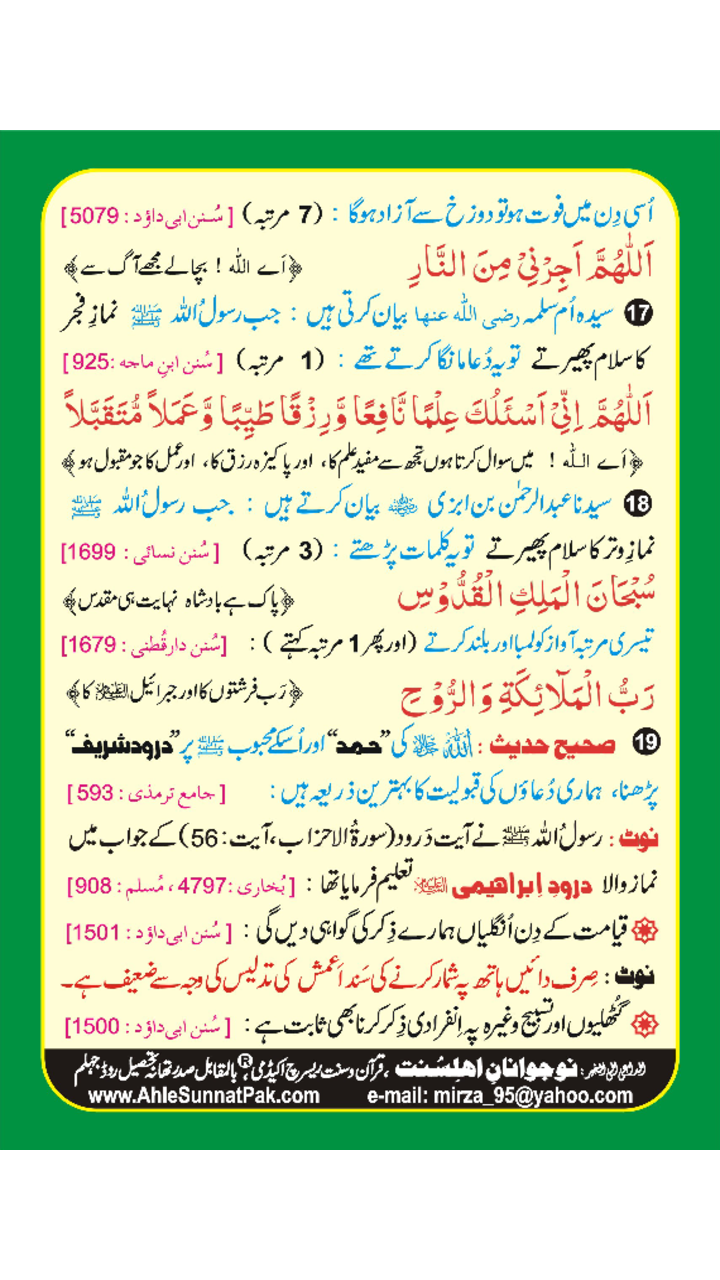 اُسی دِن میں فوت ہو تو دوزخ سے آزاد ہوگا : (7 مرتبہ) [سُنن ابی داؤد : 5079]
اَللّٰهُمَّ اَجِرْنِیْ مِنَ النَّارِ ﴿اَے اللہ ! بچالے مجھے آگ سے﴾
17 سیدہ اُم سلمہ رضی اللہ عنھا بیان کرتی ہیں : جب رسولُ اللہ ﷺ نمازِ فجر
کا سلام پھیرتے تو یہ دُعا مانگا کرتے تھے : (1 مرتبہ) [سُنن ابنِ ماجه :925]
اَللّٰهُمَّ اِنِّیْ اَسْئَلُكَ عِلْمًا نَّافِعًا وَّرِزْقًا طَيِّبًا وَّعَمَلاً مُّتَقَبَّلاً
﴿اَے اللہ ! میں سوال کرتا ہوں تجھ سے مفید علم کا، اور پاکیزہ رزق کا، اور عمل کا جو مقبول ہو﴾
18 سیدنا عبدالرحمٰن بن ابزی رضی اللہ عنہ بیان کرتے ہیں : جب رسولُ اللہ ﷺ
نمازِ وتر کا سلام پھیرتے تو یہ کلمات پڑھتے : (3 مرتبہ) [سُنن نسائی : 1699]
سُبْحَانَ الْمَلِكِ الْقُدُّوْسِ ﴿پاک ہے بادشاہ نہایت ہی مقدس﴾
تیسری مرتبہ آواز کو لمبا اور بلند کرتے (اور پھر 1 مرتبہ کہتے) : [سُنن دارقُطنی : 1679]
رَبُّ الْمَلَآئِكَةِ وَالرُّوْحِ ﴿رَب فرشتوں کا اور جبرائیل علیہ السلام کا﴾
19 صحیح حدیث : اللہ ﷻ کی ”حمد“ اور اُسکے محبوب ﷺ پر ”درود شریف“
پڑھنا، ہماری دُعاؤں کی قبولیت کا بہترین ذریعہ ہیں : [جامع ترمذی : 593]
نوٹ : رسولُ اللہ ﷺ نے آیت دَرود (سورۃ الاحزاب ،آیت : 56) کے جواب میں
نماز والا درودِ اِبراھیمی علیہ السلام تعلیم فرمایا تھا : [بُخاری :4797 ، مُسلم : 908]
قیامت کے دِن اُنگلیاں ہمارے ذِکر کی گواہی دیں گی : [سُنن ابی داؤد : 1501]
نوٹ : صِرف دائیں ہاتھ پہ شمار کرنے کی سَند اَعمش کی تدلیس کی وجہ سے ضعیف ہے۔
گُٹھلیوں اور تسبیح وغیرہ پہ اِنفرادی ذِکر کرنا بھی ثابت ہے : [سُنن ابی داؤد : 1500]
نوجوانانِ اھلِسُنت ، قرآن و سنت ریسرچ اکیڈمی ® بالمقابل صدر تھانہ تحصیل روڈ جہلم
www.AhleSunnatPak.com e-mail: mirza_95@yahoo.com